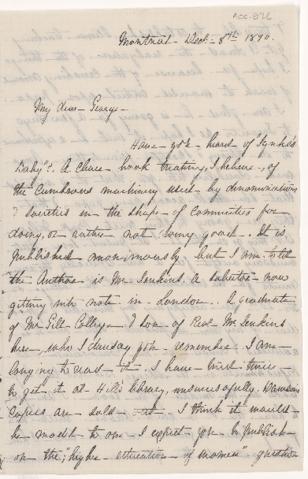 ACC-876
Montreal - Dec - 8th 1870.
My dear George -
Have you heard of "Ginx's
Baby"? A Clever book treating, I believe, of
the Cumbrous machinery used by denominations
& societies in the shape of Committees for
doing, or rather not doing good. It is
published anonymously but I am told
the Author is Mr Jenkins. A barrister now
getting into note in London. A Graduate
of McGill College & son of Revd Mr Jenkins
here, who I daresay you remember. I am
longing to read it. I have tried twice
to get it at Hill's library, unsuccessfully. Dawson's
Copies are sold out. I think it would
be meat to one. I expect you to publish
on the "higher education of women" question